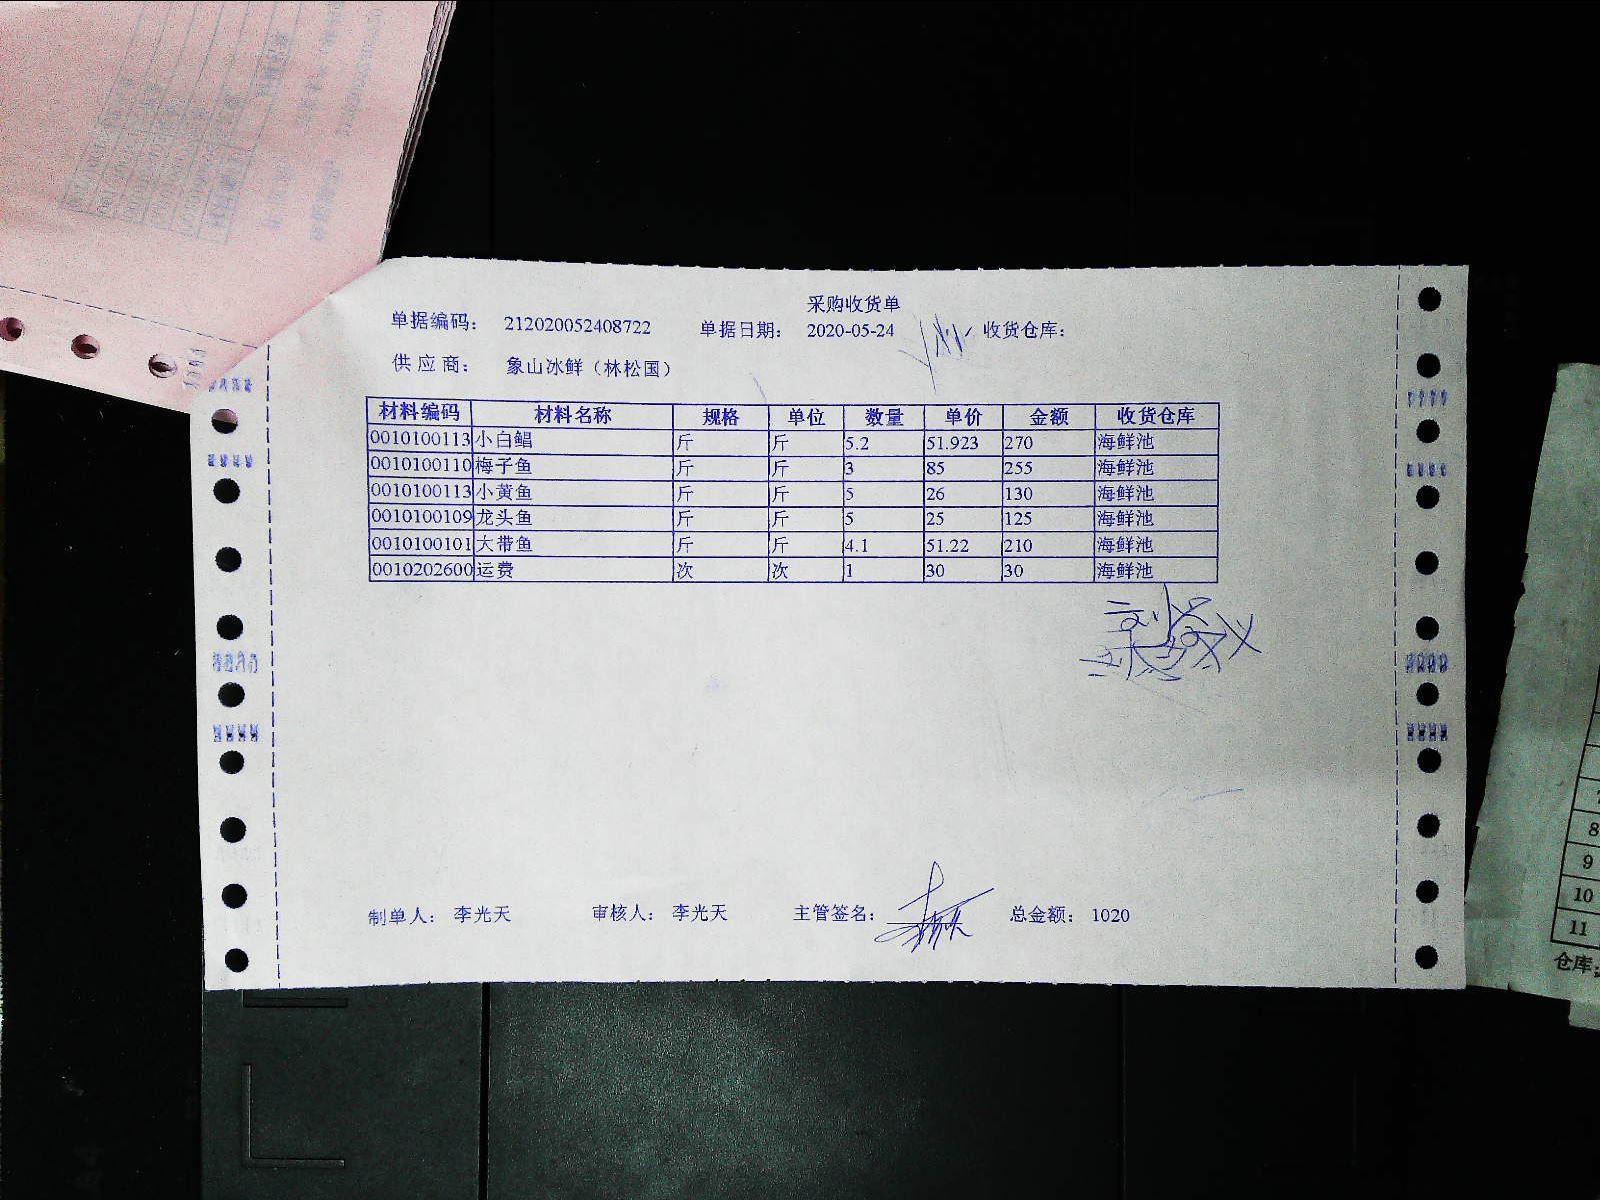 采购收货单
单据编码： 212020052408722 单据日期： 2020-05-24 收货仓库：
供 应 商： 象山冰鲜（林松国）
材料编码 材料名称 规格 单位 数量 单价 金额 收货仓库
0010100113 小白鲳 斤 斤 5.2 51.923 270 海鲜池
0010100110 梅子鱼 斤 斤 3 85 255 海鲜池
0010100113 小黄鱼 斤 斤 5 26 130 海鲜池
0010100109 龙头鱼 斤 斤 5 25 125 海鲜池
0010100101 大带鱼 斤 斤 4.1 51.22 210 海鲜池
0010202600 运费 次 次 1 30 30 海鲜池
制单人： 李光天 审核人： 李光天 主管签名： 总金额： 1020
8
9
10
11
仓库：